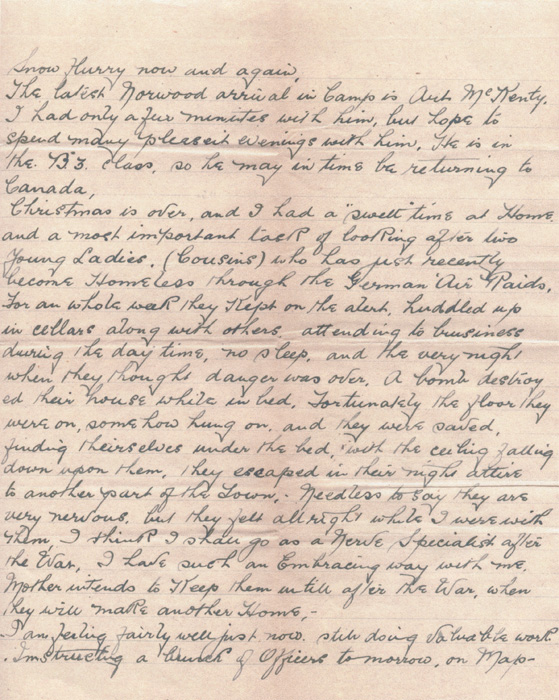 Snow flurry now and again,
The latest Norwood arrival in Camp is Art McKenty.
I had only a few menites with him, but hope to
spend many pleaseit evenings with him, He is in
the B3. class, so he may in time be returning to
Canada,
Christmas is over, and I had a "swell" time at Home
and a most important task of looking after two
Young Ladies, (Cousins) who has just recently
become Homeless through the German Air Raids,
For an whole week they Kept on the alert, huddled up
in cellars along with others, attending to buusiness
during the day time, no sleep, and the very night
when they thought danger was over, A bomb destroy
ed their house while in bed, Fortunately the floor they
were on, somehow hung on, and they were saved,
finding theirselves under the bed, with the ceiling falling
down upon them, they escaped in their night attire
to another part of the Town,- Needless to say they are
very nervous, but they felt allright while I were with
them, I think I shall go as a Nerve Specialist after
the War, I have such an Embracing way with me,
Mother intends to Keep them untill after the War, when
they will make another Home,-
I am feeling fairly well just now, still doing Valuable work
. Instructing a bunch of Officers to morrow, on Map-